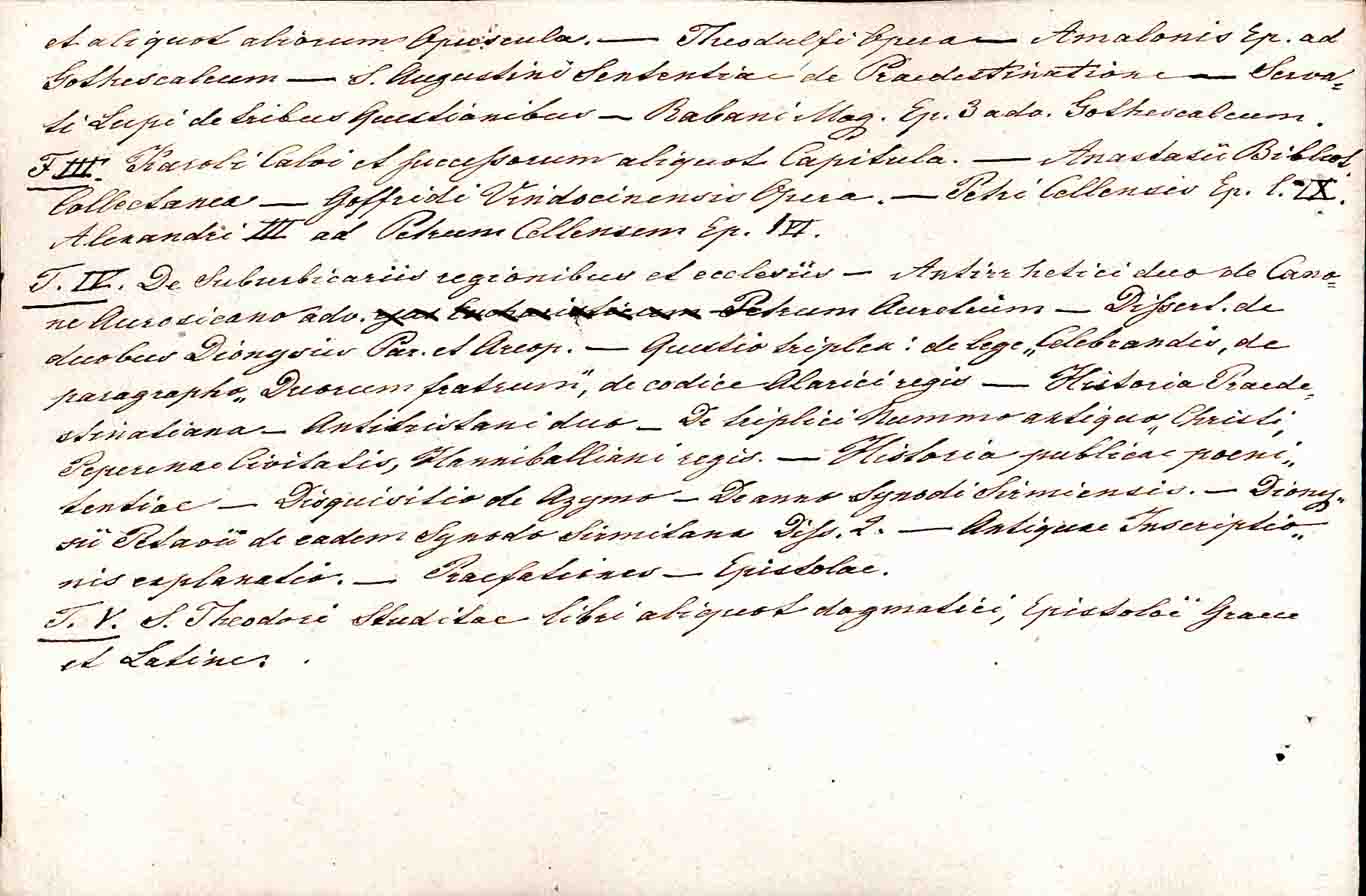 et aliquot aliorum Opuscula. — Theodulfi Opera — Amalonis Ep. ad
Gothescalcum — S. Augustini Sententiae de Praedestinatione — Serva=
ti Lupi de tribus Questionibus — Rabani Mag. Ep. 3 adv. Gothescalcum.
T. III. Karoli Calvi et successorum aliquot Capitula. — Anastasii Bibliot.
Collectanea — Goffridi Vindocinensis Opera. — Petri Cellensis Ep. l. IX.
Alexandri III ad Petrum Cellensem Ep. IVI.
T. IV. De Suburbicariis regionibus et ecclesiis — Antirrhetici duo de Cano=
ne Aurosicano adv. Petrum Aurelium — Dissert. de
duobus Dionysiis Par. et Areop. — Questio triplex: de lege „Celebrandis, de
paragrapho „Duorum fratrum", de codice Alarici regis — Historia Praede„
stinatiana — Antitristani duo — De triplici Nummo antiquo, Christi,
Peperenae Civitatis, Hanniballiani regis. — Historia publicae poeni„
tentiae — Disquisitio de Azymo — De anno Synodi Sirmiensis. — Diony„
sii Petavii de eadem Synodo Sirmitana Diss. 2. — Antiquae Inscriptio„
nis explanatio. — Praefationes — Epistolae.
T. V. S. Theodori Studitae libri aliquot dogmatici, Epistolae Graece
et Latine.